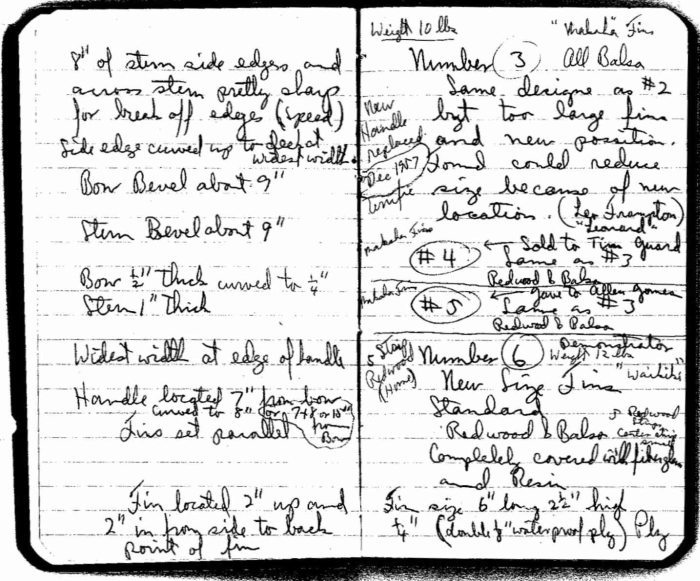 8" of stern side edges and
across stern pretty sharp
for break off edges (speed)
Side edge curved up to feet at
widest width.
Bow Bevel about 9"
Stern Bevel about 9"
Bow ½" thick curved to ¼"
Stern 1" Thick
Widest width at edge of handle
Handle located 7" from bow
curved to 8" or 7+8 or 10"
from
Bow
Fins set parallel
Fin located 2" up and
2" in from side to back
point of fin
Weight 10 lbs
"Makaha" Fins
Number 3 All Balsa
Same designe as #2
but too large fins
and new possition.
Found could reduce
size because of new
location. (Leo Frampton)
"Leonard"
New
Handle
replaced
Dec 1957
terrific
Makaha Fins
#4 Sold to Tim Guard
Same as #3
Redwood & Balsa
Makaha Fins
#5 gave to Allen Gomes
Same as #3
Redwood & Balsa
5 Strip
Redwood
(Home)
Number 6 Demonstrator
Weight 12 lbs
"Waikiki"
New Size Fins
Standard
5 Redwood
Strip
Center strip
small
Redwood & Balsa
Completely covered with fiberglass
and Resin
Fin size 6" long 2½" high
¼" (double ⅛" waterproof ply) Ply